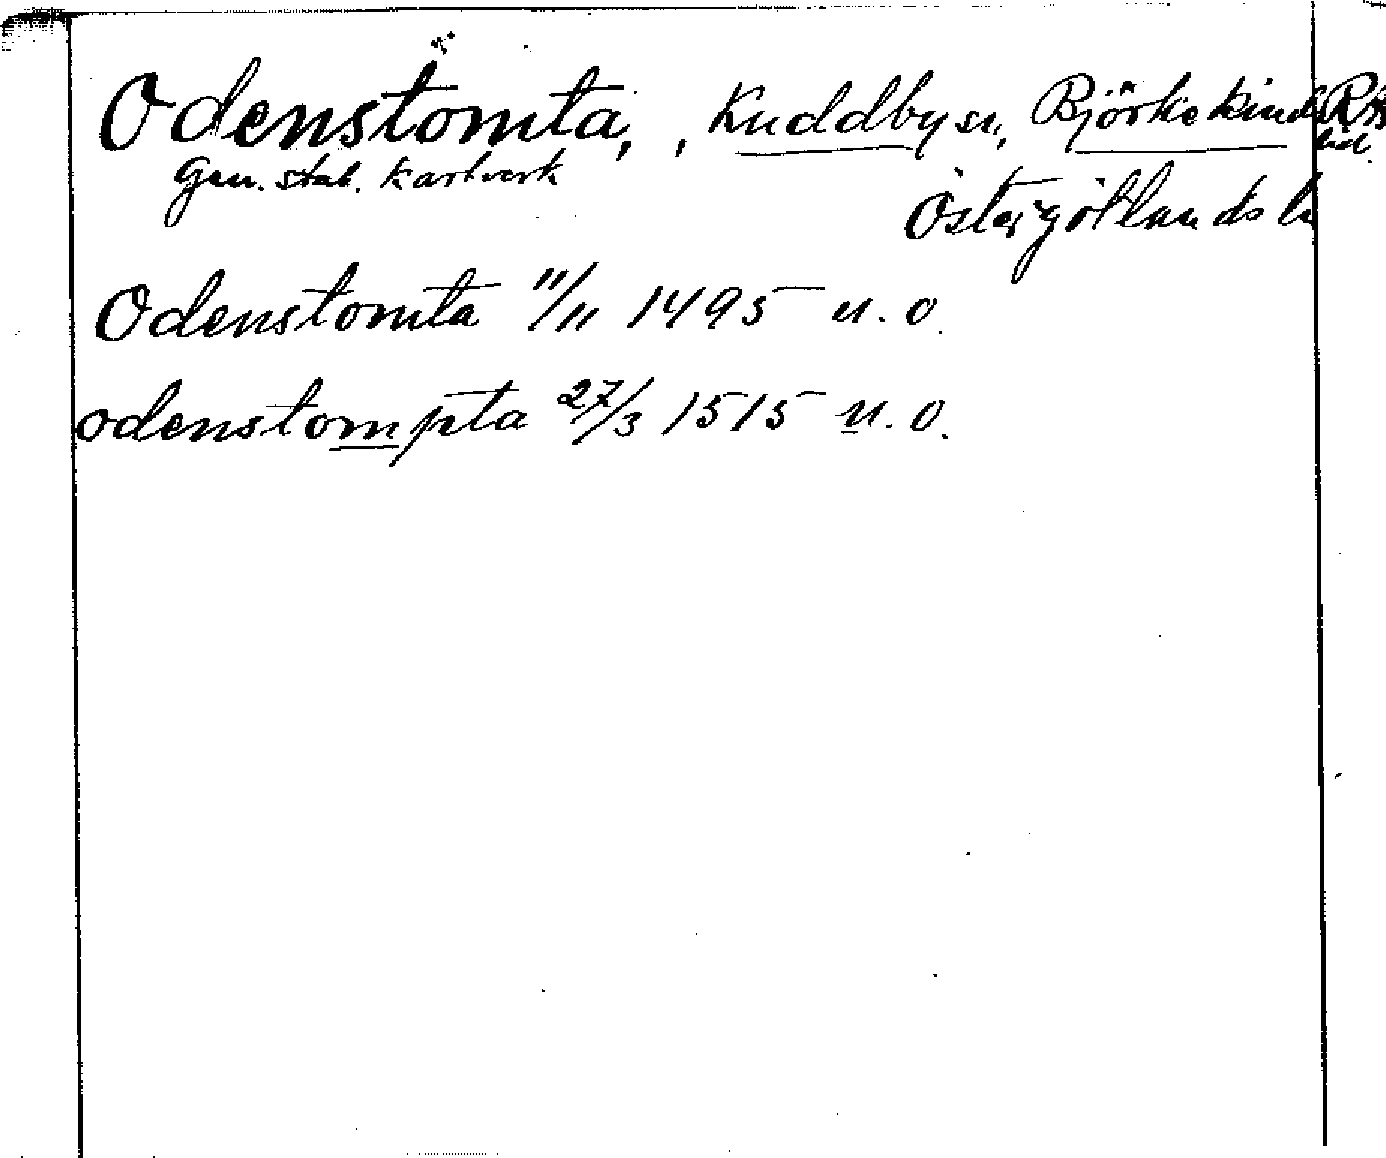 Odenstomta, , Kuddby sn, Björkekinds
hd.
Gen. stab. kartverk
Östergötlands l.
Odenstomta 11/11 1495 u. o.
odenstompta 27/3 1515 u. o.